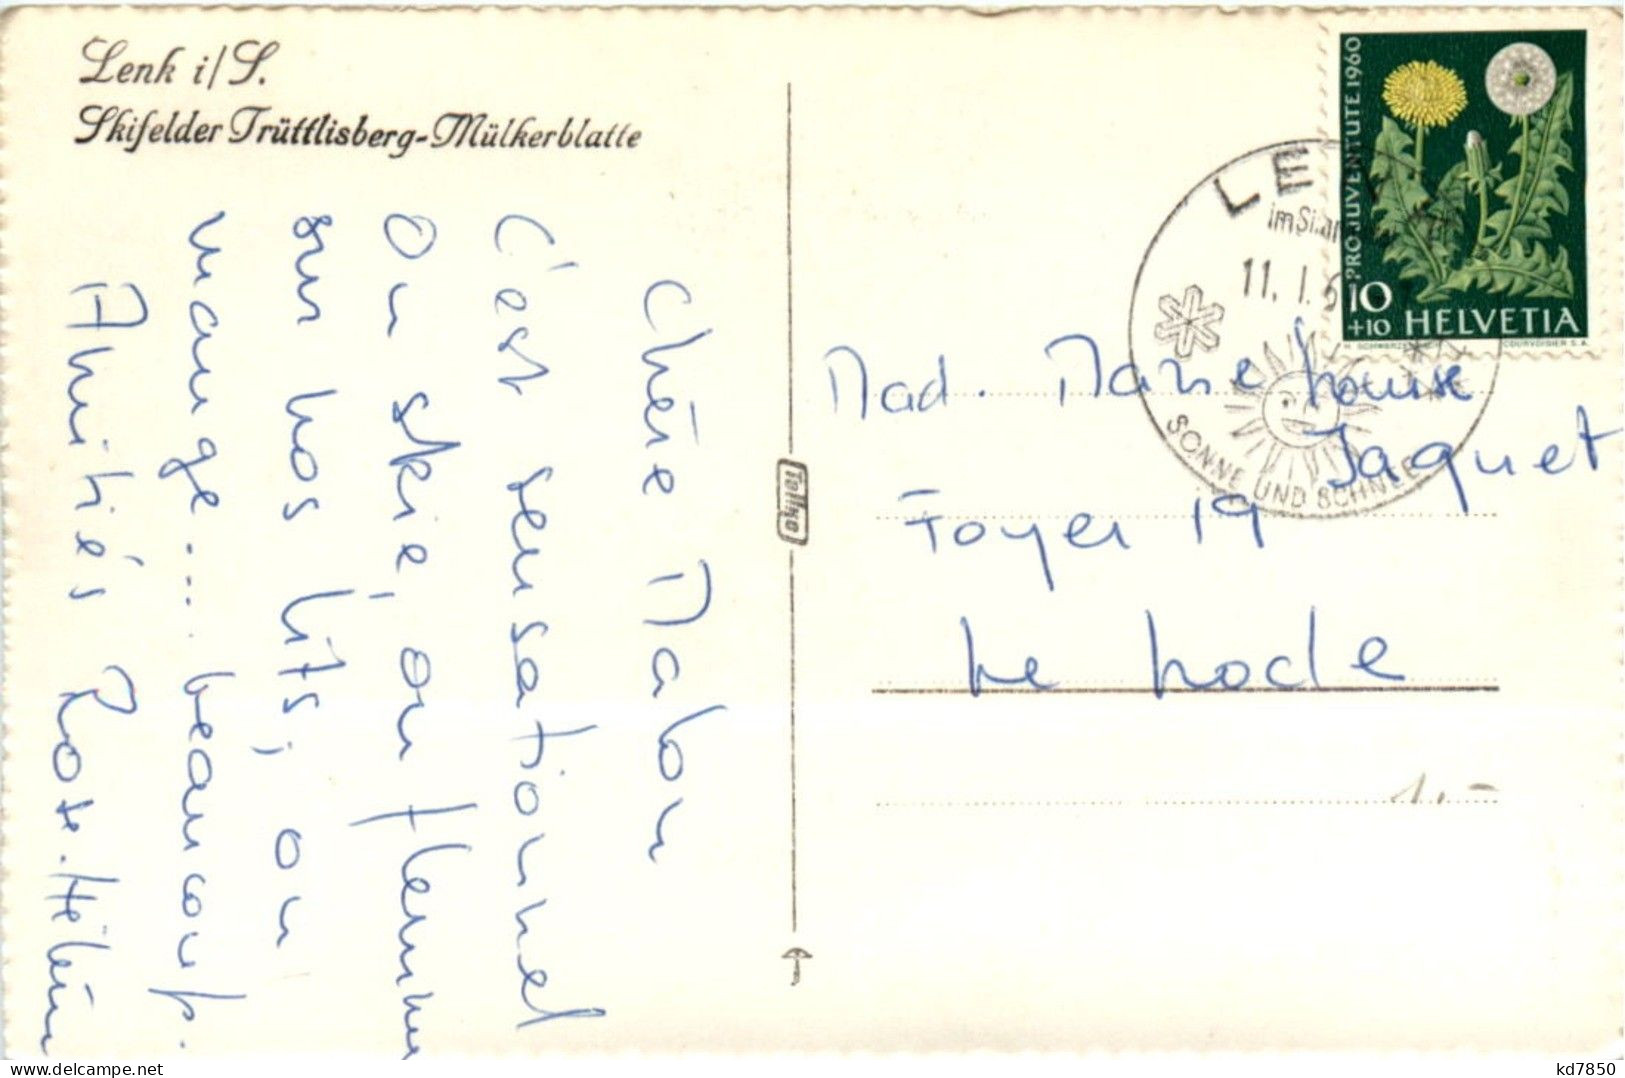 Lenk i/S.
Skifelder Trüttlisberg-Mülkerblatte
Chère Mabou
C'est sensationnel
On skie, on flemme
sur nos lits, on
mange... beaucoup.
Amitiés Rose-Hélène
Tellko
PRO JUVENTUTE 1960
10
+10 HELVETIA
COURVOISIER S.A.
LE
im Sim
11. I. 6
SONNE UND SCHNEE
Mad. Marie Louise
Jaquet
Foyer 19
Le Locle
1.-
kd7850